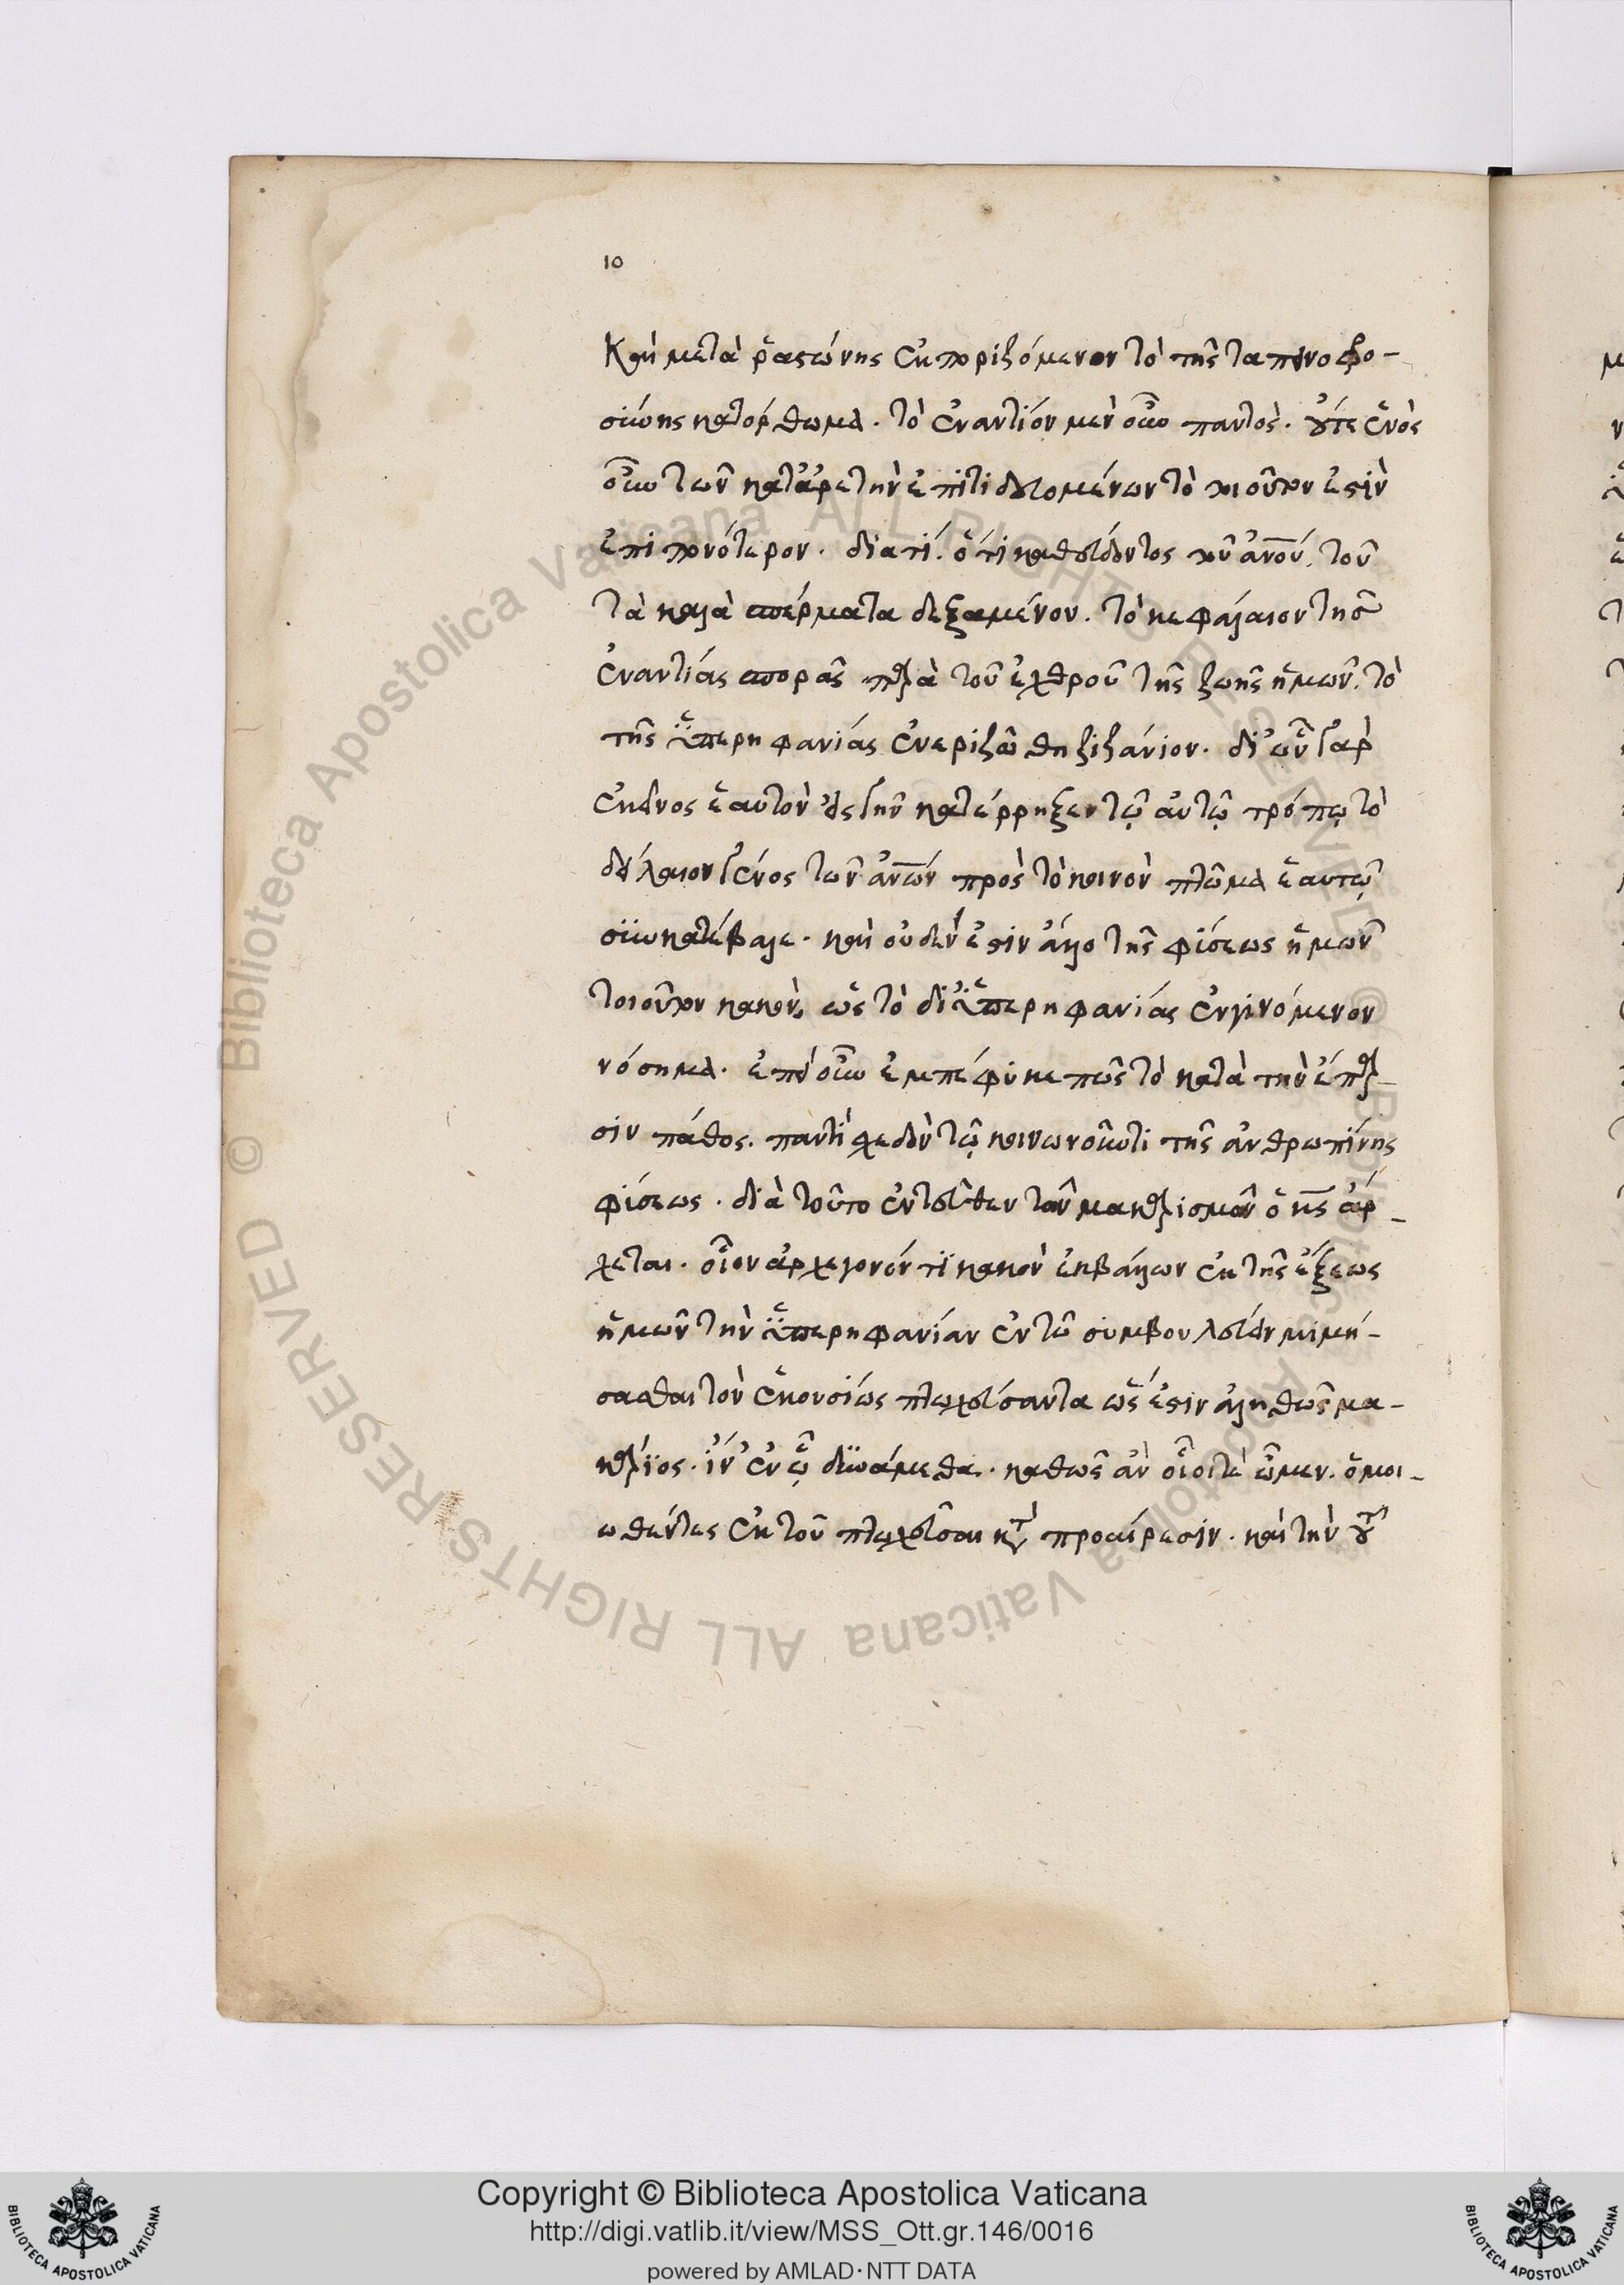 10
Καὶ μετὰ ῥαστώνης ἐκποριζόμενον τὸ τῆς ταπεινοφρο-
σύνης κατόρθωμα. τὸ ἐναντίον μὲν οὖν παντὸς. οὔτε ἑνὸς
οὖν τῶν κατ' ἀρετὴν ἐπιτιδευομένων τὸ τοιοῦτον ἐστὶν
ἐπιπονότερον. διατί. ὅτι καθεύδοντος τοῦ ἀνοῦ. τοῦ
τὰ καλὰ σπέρματα δεξαμένου. τὸ κεφάλαιον τῆς
ἐναντίας σπορᾶς παρὰ τοῦ ἐχθροῦ τῆς ζωῆς ἡμῶν. τὸ
τῆς ὑπερηφανίας ἐνεριζώθη ζιζάνιον. δι' ὧν γὰρ
ἐκεῖνος ἑαυτὸν εἰς γῆν κατέρρηξεν τῷ αὐτῷ τρόπῳ τὸ
δείλαιον γένος τῶν ἀνων πρὸς τὸ κοινὸν πτῶμα ἑαυτῷ
συγκατέβαλε. καὶ οὐδέν ἐστιν ἄλλο τῆς φύσεως ἡμῶν
τοιοῦτον κακὸν, ὡς τὸ δι' ὑπερηφανίας ἐγγινόμενον
νόσημα. ἐπεὶ οὖν ἐμπέφυκε πῶς τὸ κατὰ τὴν ἔπαρ-
σιν πάθος. παντὶ σχεδὸν τῷ κοινωνοῦντι τῆς ἀνθρωπίνης
φύσεως. διὰ τοῦτο ἐντεῦθεν τῶν μακαρισμῶν ὁ κς ἄρ-
χεται. οἷον ἀρχέγονόν τι κακὸν ἐκβάλλων ἐκ τῆς ἕξεως
ἡμῶν τὴν ὑπερηφανίαν ἐν τῷ συμβουλεύειν μιμή-
σασθαι τὸν ἑκουσίως πτωχεύσαντα ὡς ἐστιν ἀληθῶς μα-
κάριος. ἵν' ἐν ᾧ δυνάμεθα. καθὼς ἂν οἷοί τε ὦμεν. ὁμοι-
ωθέντες ἐκ τοῦ πτωχεῦσαι κτ προαίρεσιν. καὶ τὴν τοῦ
Copyright © Biblioteca Apostolica Vaticana
http://digi.vatlib.it/view/MSS_Ott.gr.146/0016
powered by AMLAD·NTT DATA